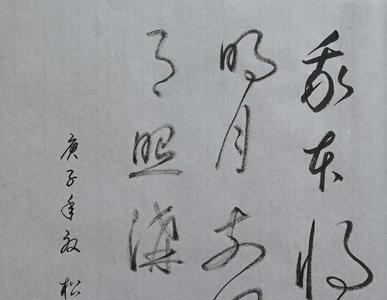 我本将
明月奈
了照渠
庚子年秋松